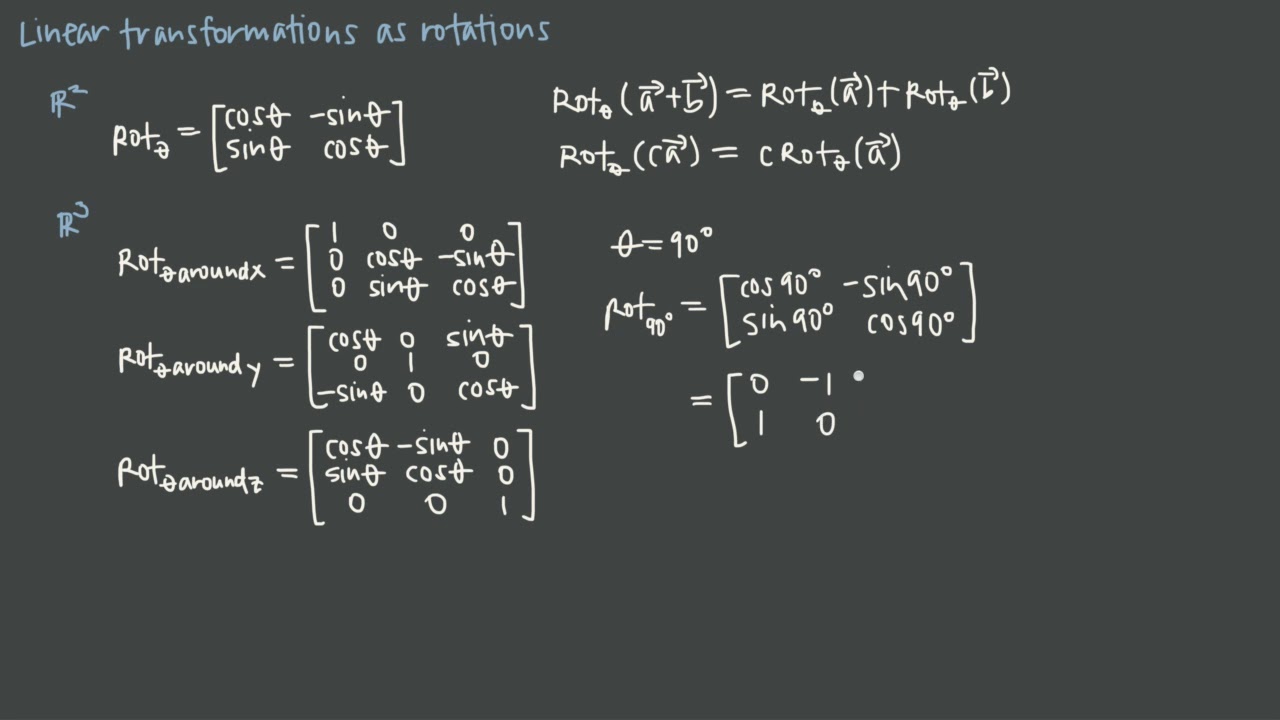 Linear transformations as rotations
ℝ²
Rot_θ = [cosθ -sinθ
sinθ cosθ]
Rot_θ(a⃗+b⃗) = Rot_θ(a⃗) + Rot_θ(b⃗)
Rot_θ(ca⃗) = c Rot_θ(a⃗)
ℝ³
Rot_θ around x = [1 0 0
0 cosθ -sinθ
0 sinθ cosθ]
Rot_θ around y = [cosθ 0 sinθ
0 1 0
-sinθ 0 cosθ]
Rot_θ around z = [cosθ -sinθ 0
sinθ cosθ 0
0 0 1]
θ = 90°
Rot_90° = [cos90° -sin90°
sin90° cos90°]
= [0 -1
1 0